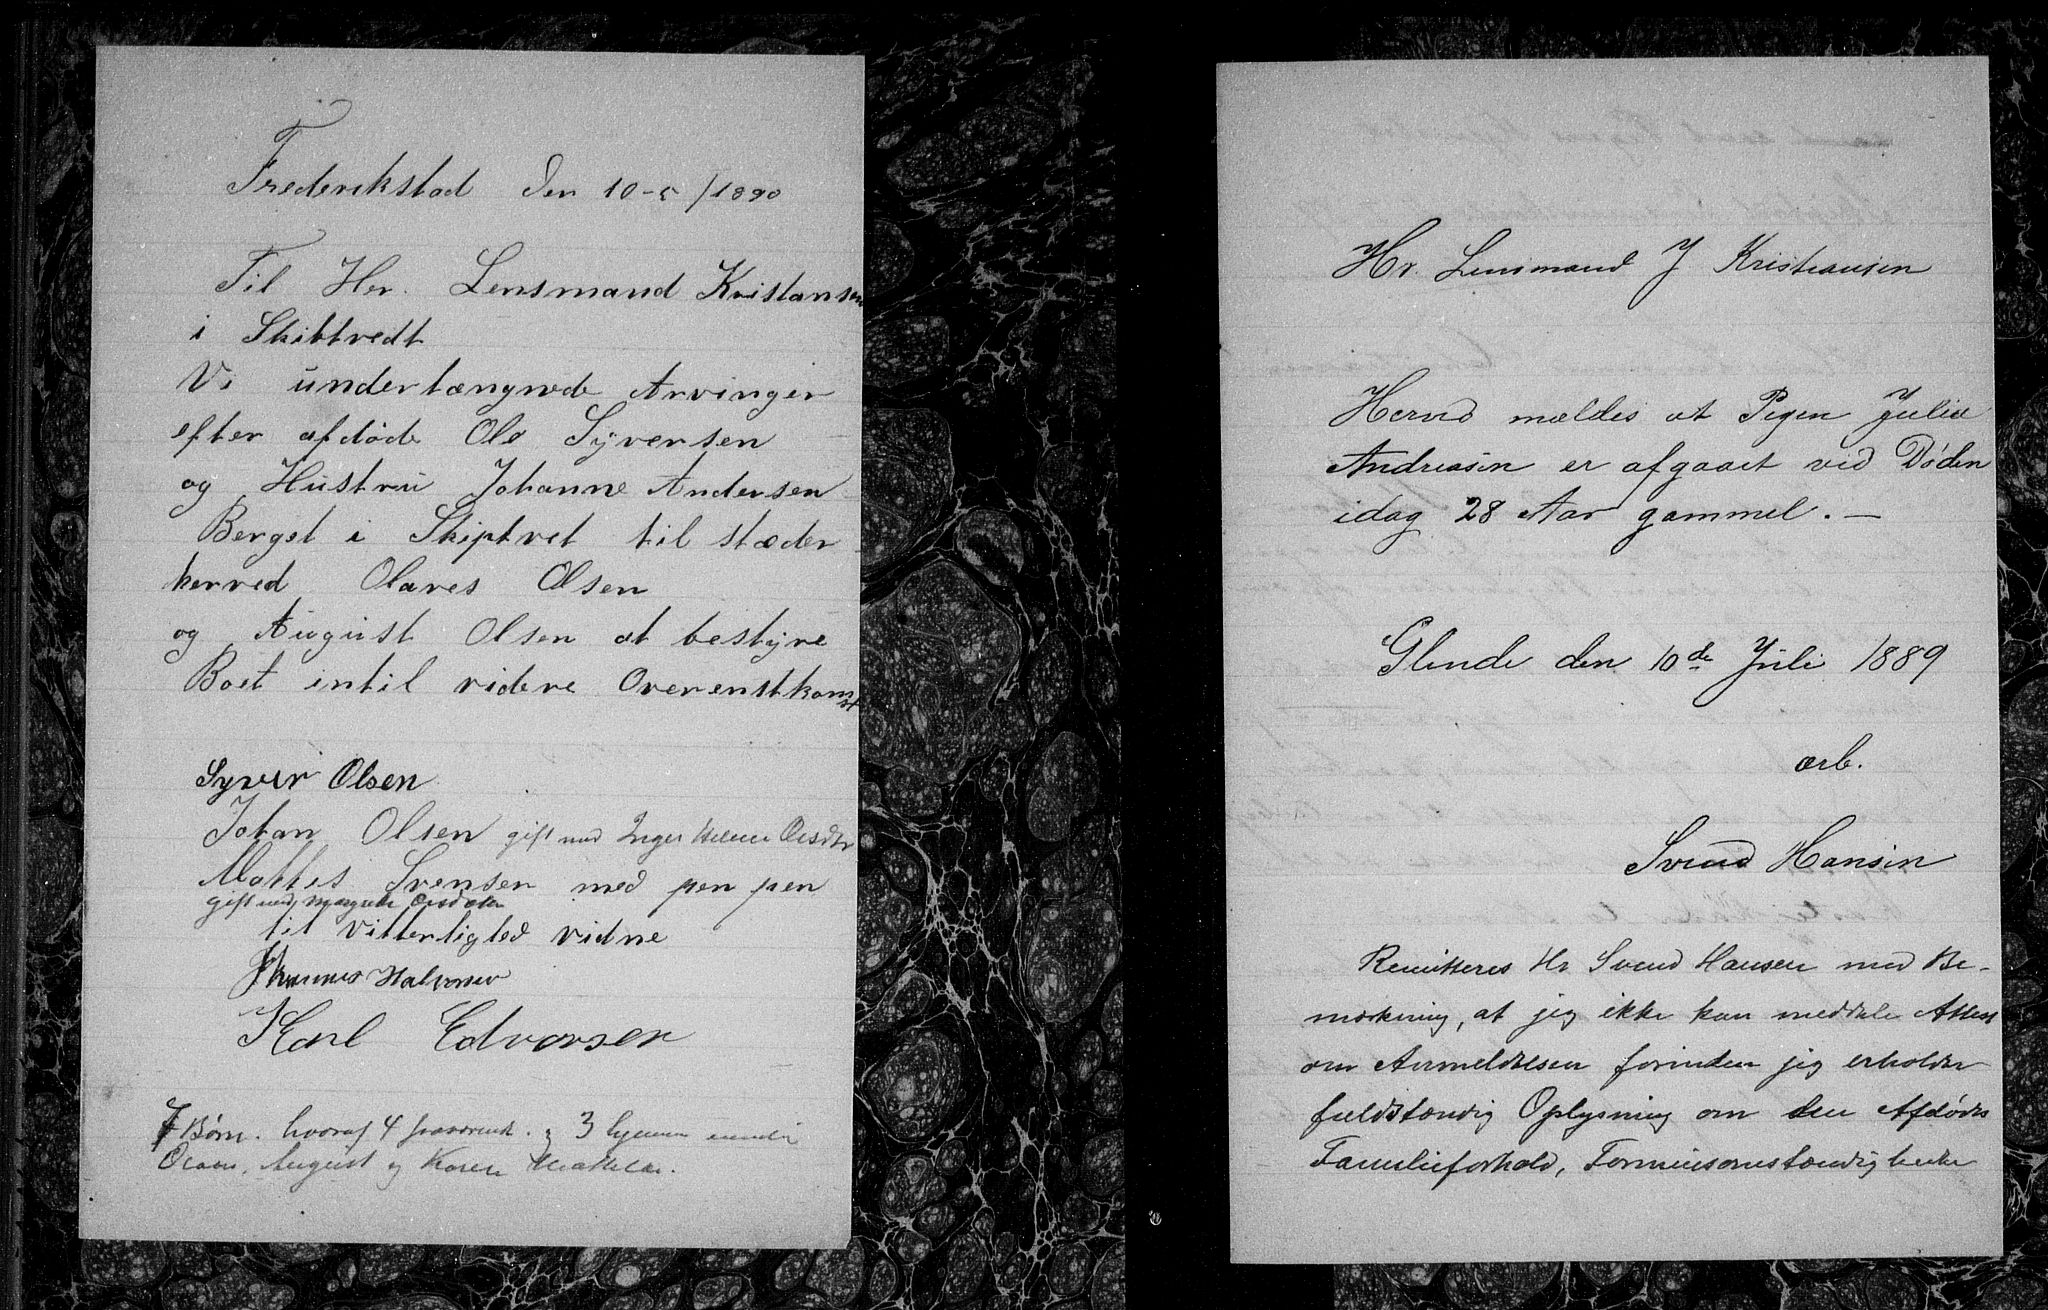 Frederikstad den 10-5/1890
Til Her. Lensmand Kristansen
i Skibtvedt
Vi undertængnede Arvinger
efter afdøde Ole Syversen
og Hustru Johanne Andersen
Berget i Skiptvet til stæder
herved Olaves Olsen
og August Olsen at bestyre
Boet intil videre Overenstkomst
Syver Olsen
Johan Olsen gift med Inger Helene Olsdtr
Mattes Svensen med pen pen
gift med Margrethe Olsdatter
til Vitterlighed vidne
Halvorsen
Karl Edvarsen
7 Børn. hvoraf 4 fraværende. og 3 hjemme
Olaves, August og Karen Mathilde.
Hr. Lensmand J Kristiansen
Herved mældes at Pigen Julie
Andreasen er afgaaet ved Døden
idag 28 Aar gammel. —
Glende den 10de Juli 1889
ærb.
Svend Hansen
Remitteres Hr Svend Hansen med Be-
mærkning, at jeg ikke kan meddele Attest
om Anmeldelsen forinden jeg erholder
fuldstændig Oplysning om den Afdødes
Familieforhold, Formuesomstændigheder